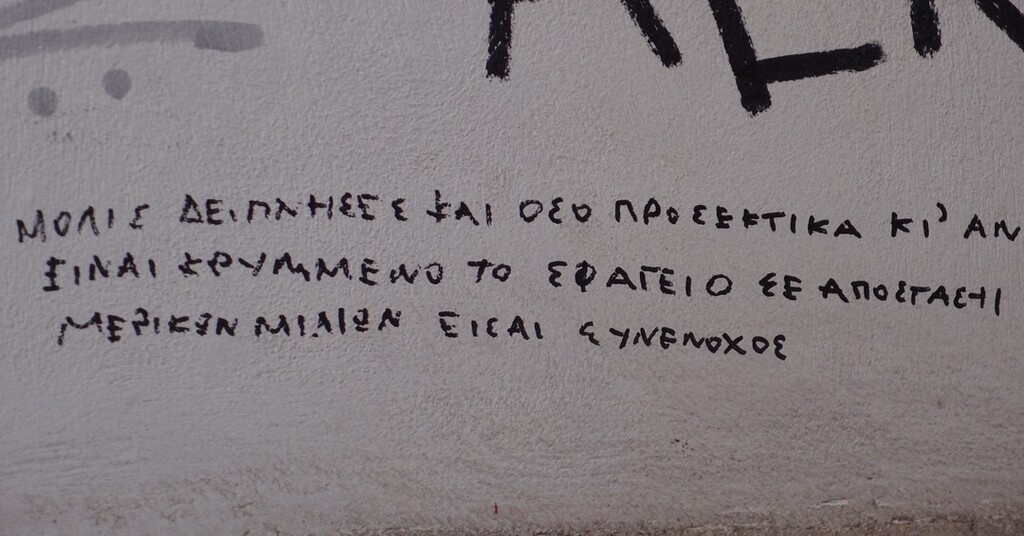 ΜΟΛΙΣ ΔΕΙΠΝΗΣΕΣ ΚΑΙ ΟΣΟ ΠΡΟΣΕΚΤΙΚΑ ΚΙ' ΑΝ
ΕΙΝΑΙ ΚΡΥΜΜΕΝΟ ΤΟ ΣΦΑΓΕΙΟ ΣΕ ΑΠΟΣΤΑΣΗ
ΜΕΡΙΚΩΝ ΜΙΛΙΩΝ ΕΙΣΑΙ ΣΥΝΕΝΟΧΟΣ